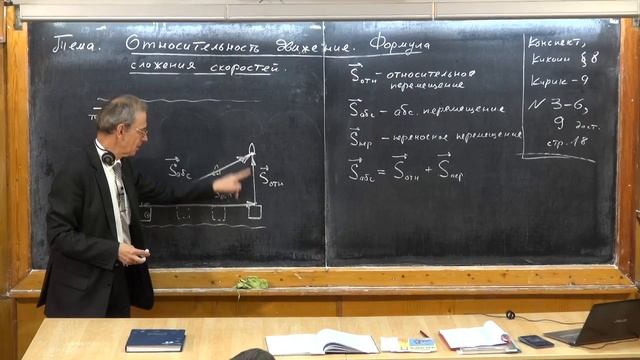 Тема. Относительность движения. Формула
сложения скоростей.
S абс
S отн
S отн – относительное
перемещение
S абс – абс. перемещение
S пер – переносное перемещение
S абс = S отн + S пер
Конспект,
Кикоин § 8
Кирик – 9
N 3–6,
9 дост.
стр. 18